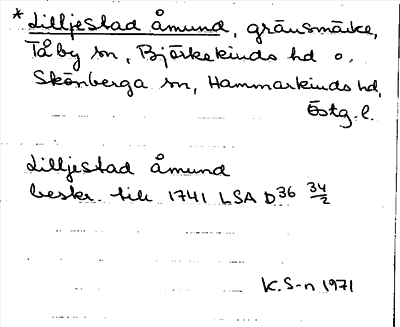 * Lilljestad åmund, gränsmärke,
Tåby sn, Björkekinds hd o.
Skönberga sn, Hammarkinds hd,
Östg. l.
Lilljestad Åmund
beskr. till 1741 LSA D36 34/2
K. S-n 1971